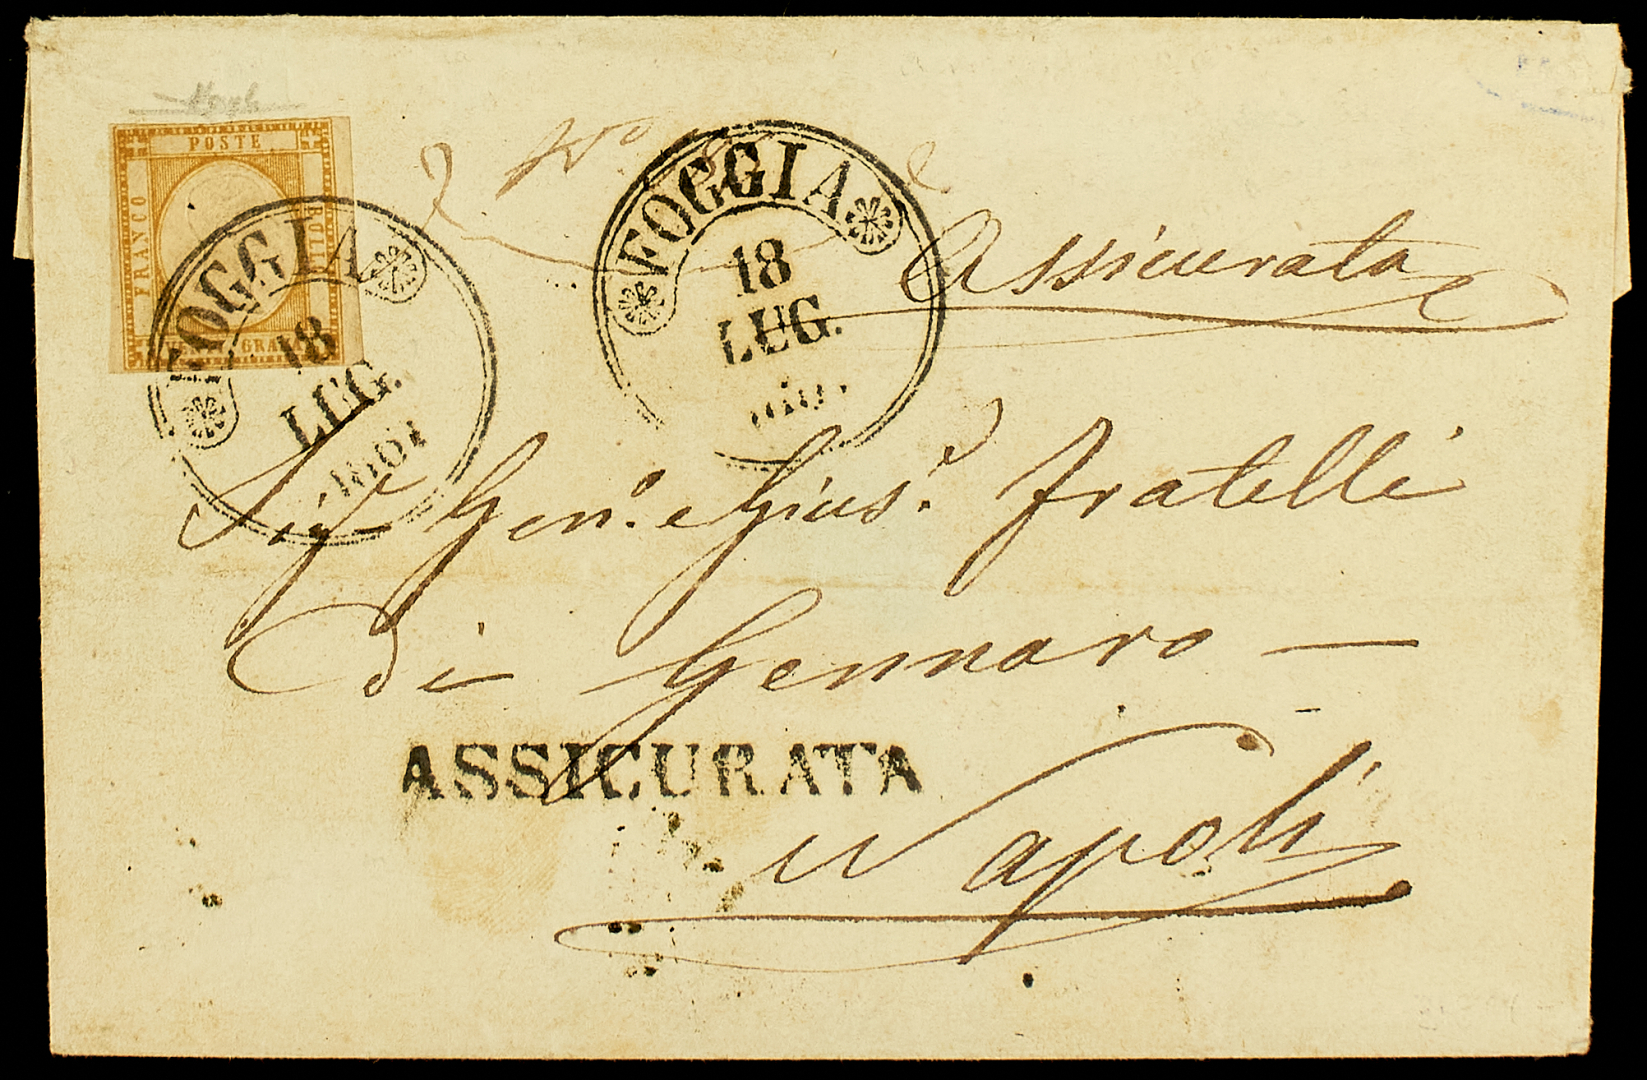 POSTE
FRANCO
BOLLO
GRANA
FOGGIA
18
LUG.
FOGGIA
18
LUG.
Assicurata
Sig.ⁱ Gen.º e Gius.ᵉ fratelli
di Gennaro —
ASSICURATA
Napoli